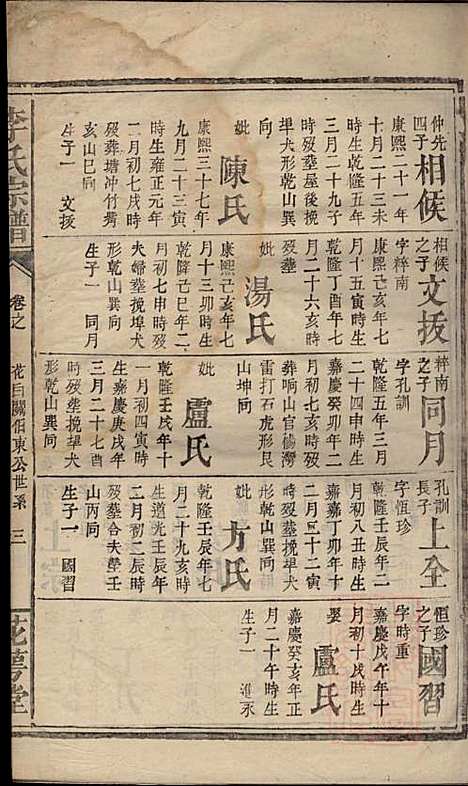 仲先四子
相候
康熙二十一年
十月二十三未
時生乾隆五年
三月二十九子
時歿葬屋後挽
犂犬形乾山巽
向
妣
陳氏
康熙三十七年
九月二十三寅
時生雍正元年
二月初七戌時
歿葬塘冲竹背
亥山巳向
生子一 文拔
相候之子
文拔
字粹南
康熙己亥年七
月十五寅時生
乾隆丁酉年七
月二十六亥時
歿葬
妣
湯氏
康熙己亥年七
月十三卯時生
乾隆己巳年二
月初七申時歿
夫婦葬挽犂犬
形乾山巽向
生子一 同月
粹南之子
同月
字孔訓
乾隆五年三月
二十四申時生
嘉慶癸亥年二
月初七亥時歿
葬鳴山官楊灣
雷打石虎形艮
山坤向
妣
盧氏
乾隆壬戌年十
一月初四寅時
生嘉慶庚戌年
三月二十七酉
時歿葬挽犂犬
形乾山巽向
孔訓長子
上全
字恒珍
乾隆壬辰年二
月初八丑時生
嘉慶丁卯年十
二月二十二寅
時歿葬挽犂犬
形乾山巽向
妣
方氏
乾隆壬辰年二
月二十九亥時
生道光壬辰年
二月初三辰時
歿葬合夫塋壬
山丙向
生子一 國習
恒珍之子
國習
字時重
嘉慶戊午年十
月初十戌時生
娶
盧氏
嘉慶癸亥年正
月二十午時生
生子一 進承
李氏宗譜
卷之
花白關伯東公世系
三
花萼堂